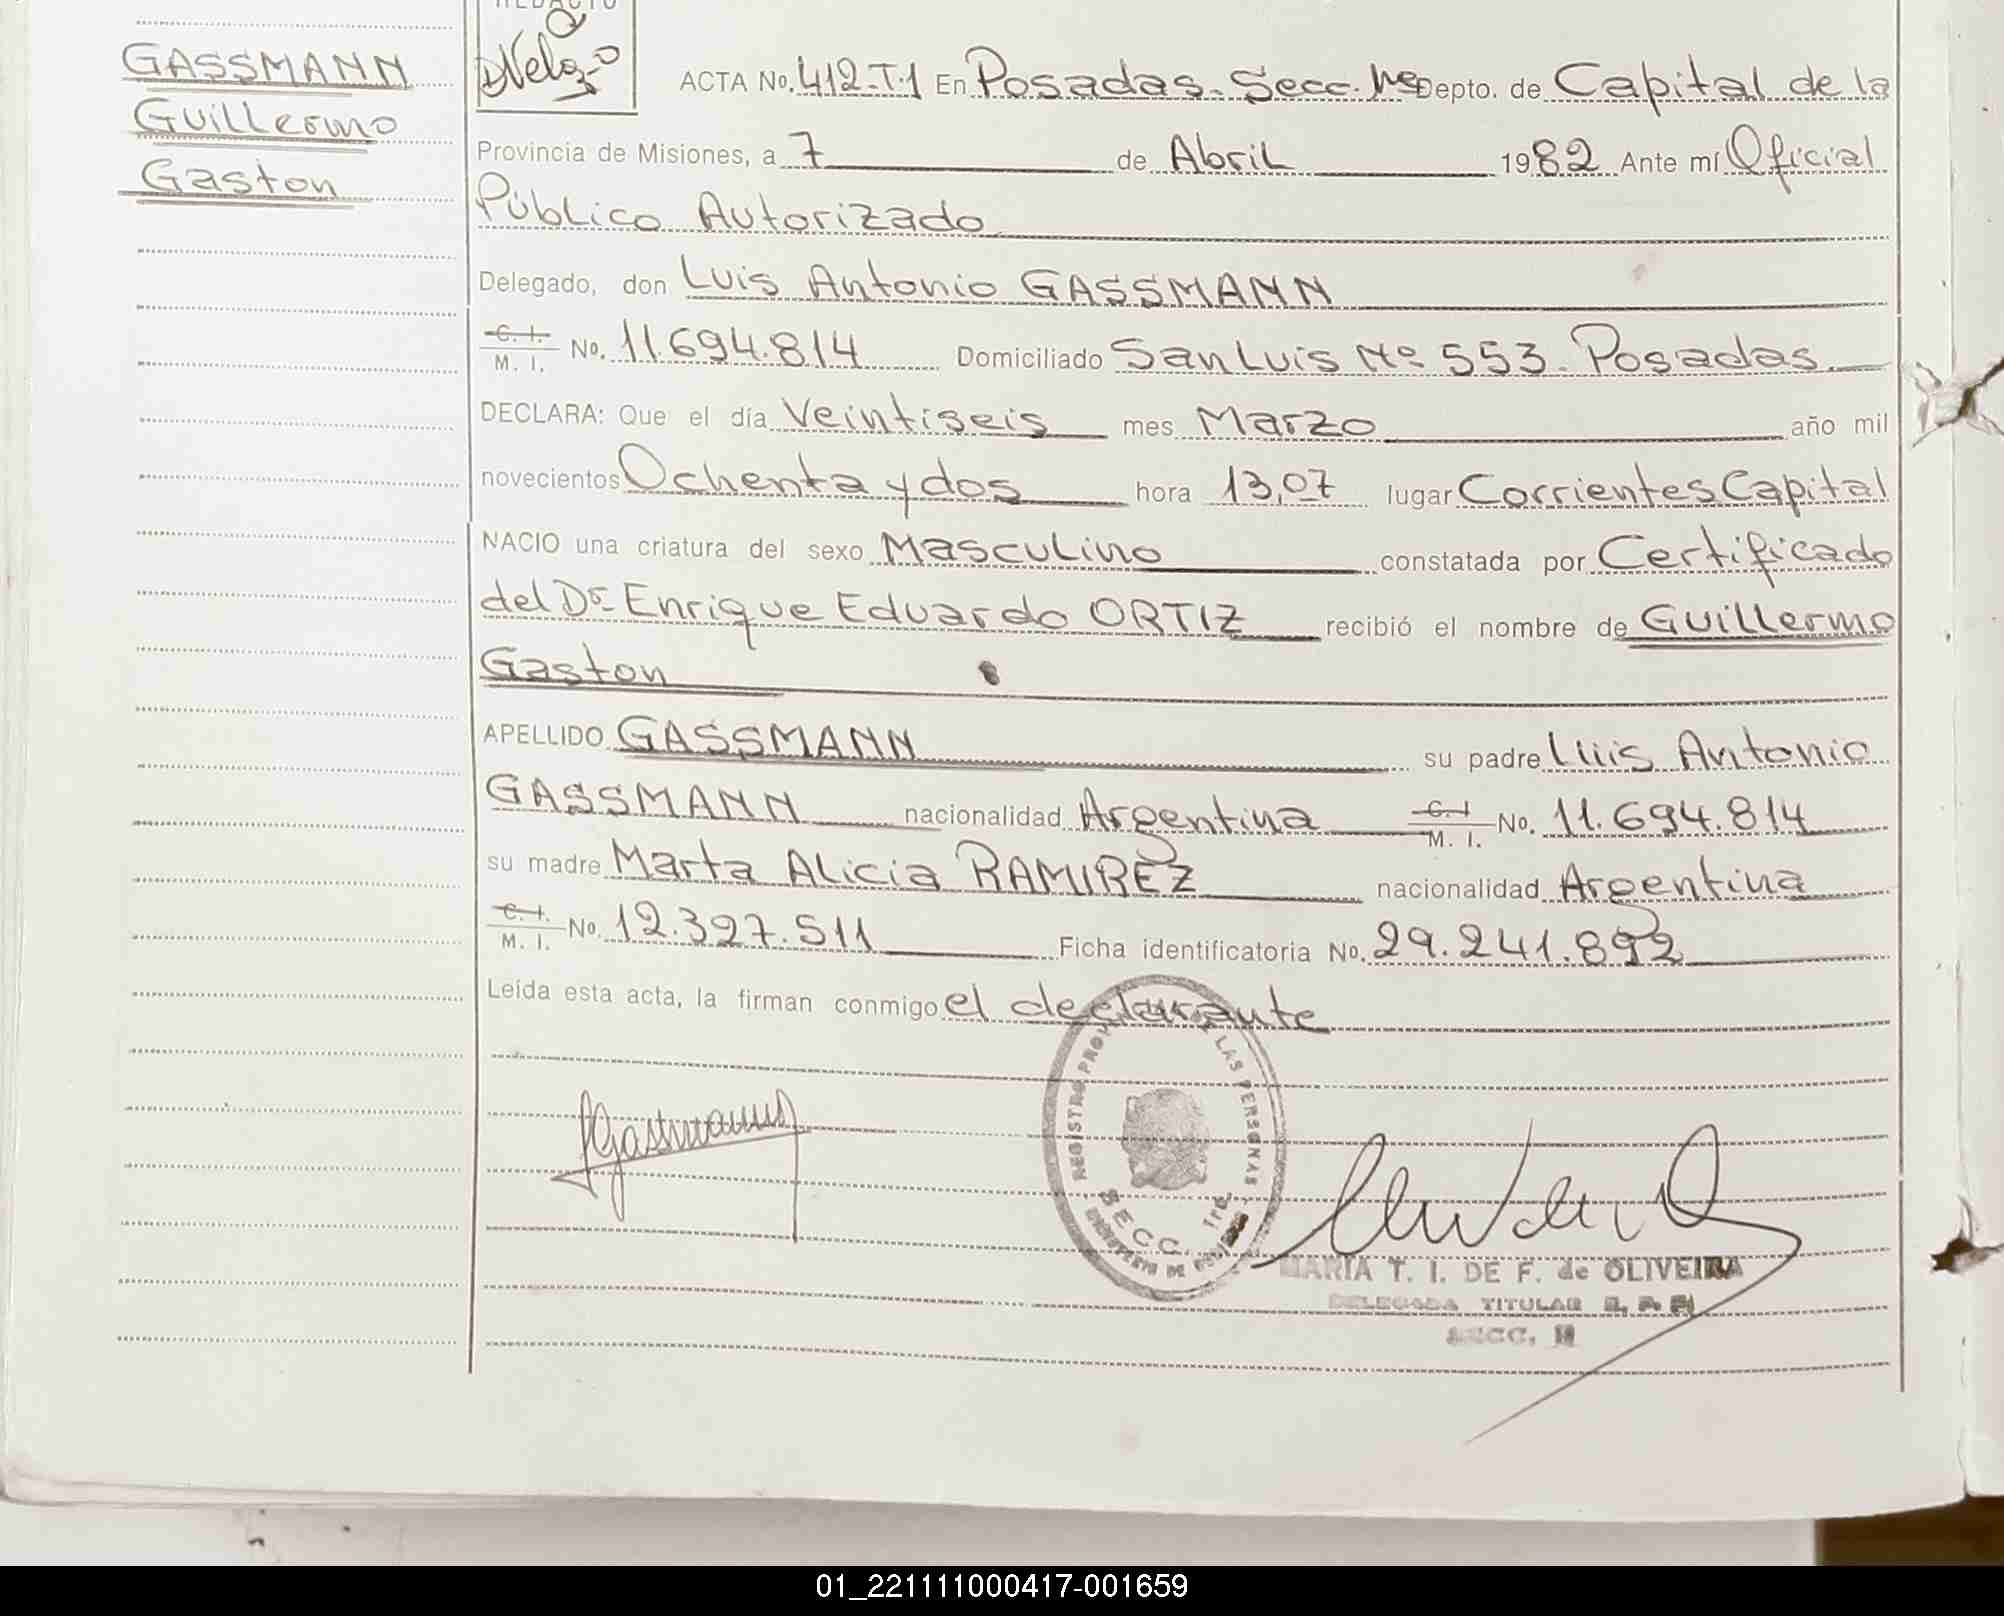 REDACTO
GASSMANN
Guillermo
Gaston
ACTA No. 412-T.1 En Posadas. Secc. 1ra Depto. de Capital de la
Provincia de Misiones, a 7 de Abril 1982 Ante mí Oficial
Público Autorizado
Delegado, don Luis Antonio GASSMANN
C. I. / M. I. No. 11.694.814 Domiciliado San Luis Nº 553. Posadas
DECLARA: Que el día Veintiseis mes Marzo año mil
novecientos Ochenta y dos hora 13,07 lugar Corrientes Capital
NACIO una criatura del sexo Masculino constatada por Certificado
del Dr. Enrique Eduardo ORTIZ recibió el nombre de Guillermo
Gaston
APELLIDO GASSMANN su padre Luis Antonio
GASSMANN nacionalidad Argentina C. I / M. I. No. 11.694.814
su madre Marta Alicia RAMIREZ nacionalidad Argentina
C. I. / M. I. No. 12.327.511 Ficha identificatoria No. 29.241.892
Leída esta acta, la firman conmigo el declarante
REGISTRO LAS PERSONAS
SECC. 1ra.
MINISTERIO DE
MARIA T. I. DE F. de OLIVEIRA
DELEGADA TITULAR R. P. P.
SECC.
01_221111000417-001659